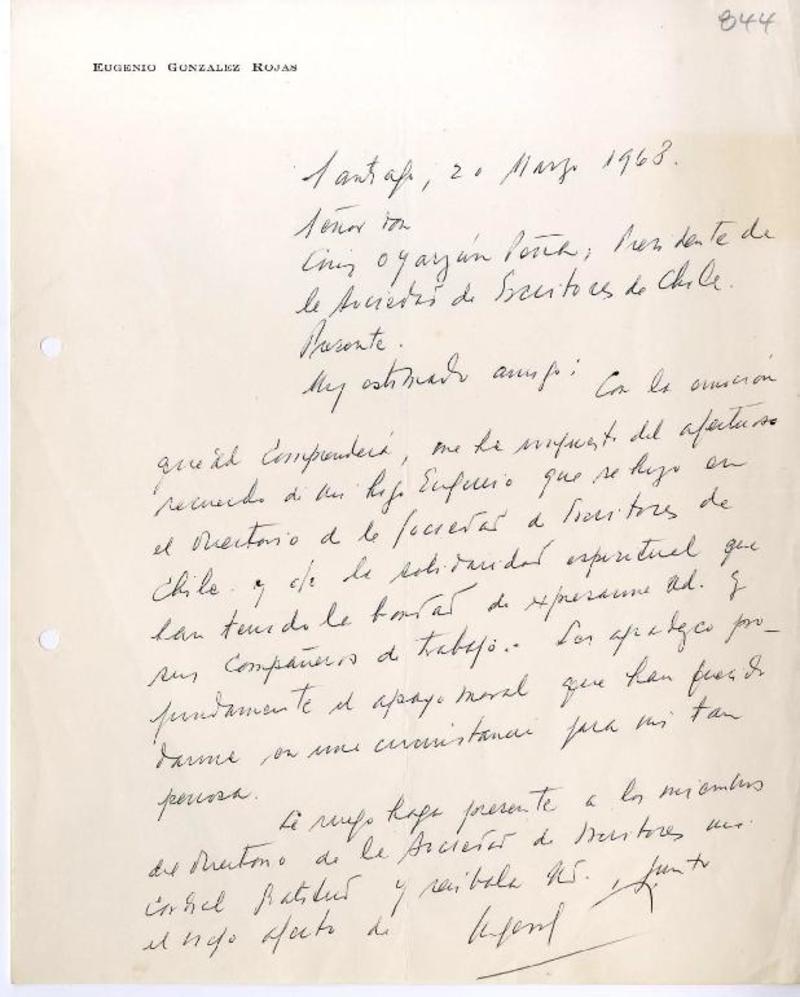 844
EUGENIO GONZALEZ ROJAS
Santiago, 20 Marzo 1968.
Señor don
Luis Oyarzún Peña, Presidente de
la Sociedad de Escritores de Chile.
Presente.
Muy estimado amigo: Con la emoción
que Ud comprenderá, me he impuesto del afectuoso
recuerdo de mi hijo Eugenio que se hizo en
el Directorio de la Sociedad de Escritores de
Chile y de la solidaridad espiritual que
han tenido la bondad de expresarme Ud. y
sus compañeros de trabajo.- Les agradezco pro-
fundamente el apoyo moral que han querido
darme en una circunstancia para mi tan
penosa.
Le ruego haga presente a los miembros
del Directorio de la Sociedad de Escritores mi
cordial gratitud y recíbala Ud., junto
el viejo afecto de